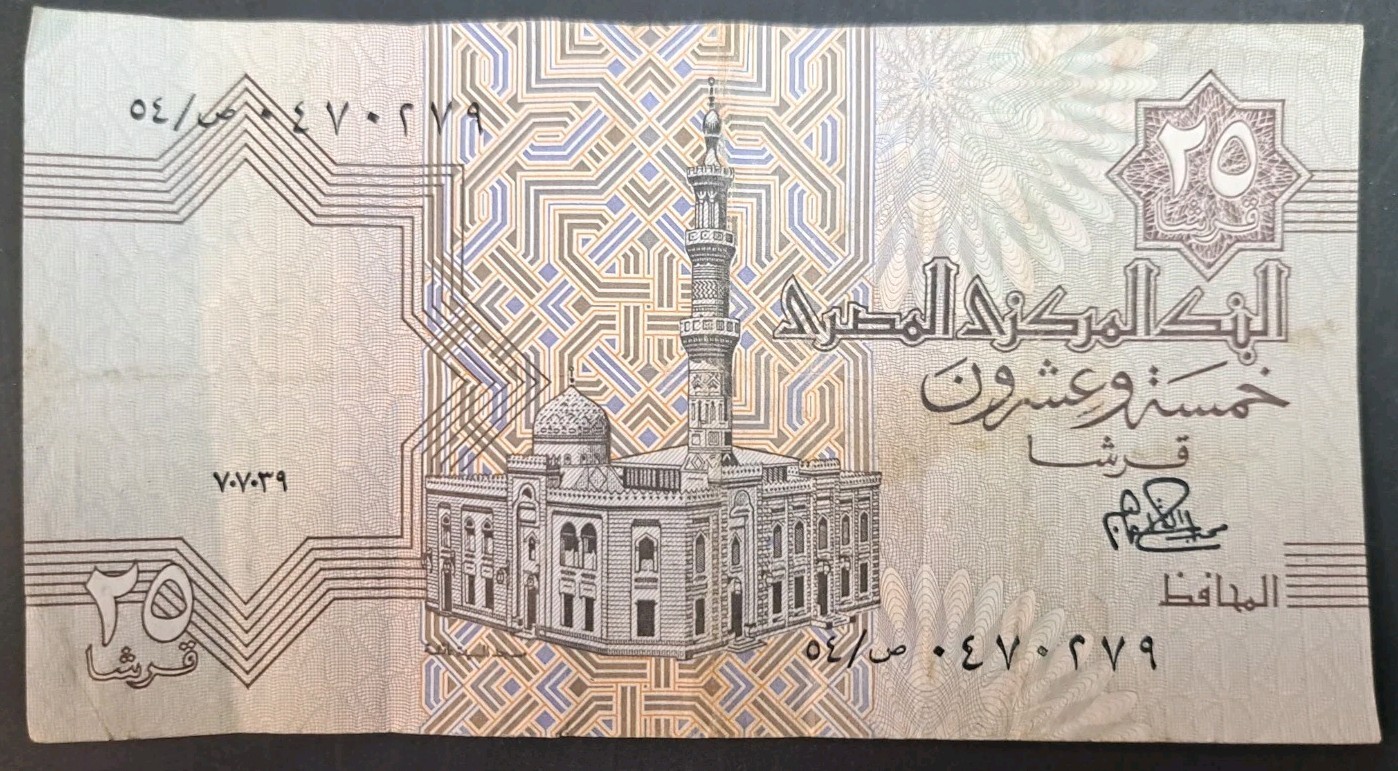 ٥٤/ص ٠٤٧٠٢٧٩
٢٥
قرشا
البنك المركزى المصرى
خمسَة وعِشرونَ
قرشا
المحافظ
٧٠٧٠٣٩
٢٥
قرشا
٥٤/ص ٠٤٧٠٢٧٩